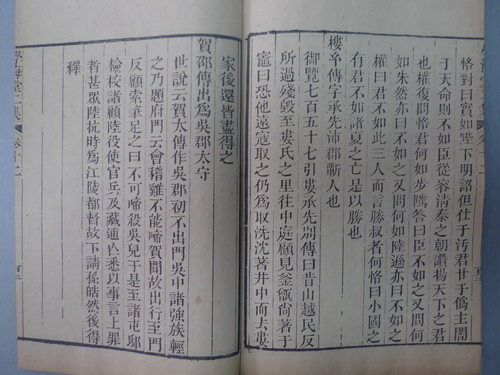 恪對曰實如陛下明詔但仕于汚君甘于僞主闇
于天命則不如臣從容清泰之朝讚揚天下之君
也權復問恪君何如步隲荅曰臣不如之又問何
如朱然亦曰不如之又問何如陸遜亦曰不如之
權曰君不如此三人而言勝叔者何恪曰小國之
有君不如諸夏之亡是以勝也
樓玄傳字承先沛郡蘄人也
御覽七百五十七引婁承先別傳曰昔山越民反
所過殘毀至婁氏之里往中庭顧見釜甑尚著于
竈曰恐他遠寇取之仍爲取洗沈著井中而去婁
家後還皆盡得之
賀邵傳出爲吳郡太守
世說云賀太傅作吳郡初不出門吳中諸強族輕
之乃題府門云會稽雞不能啼賀聞故出行至門
反顧索筆足之曰不可啼殺吳兒于是至諸屯邸
檢校諸顧陸役使官兵及藏逋亾悉以事言上罪
者甚眾陸抗時爲江陵都督故下請孫皓然後得
釋
學海堂二集